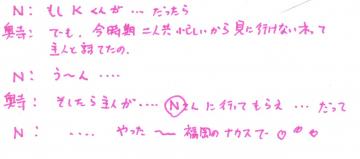 N: もし K くんが … だったら
奥寺: でも、今時期 二人共 忙しいから 見に行けないネって
主人と話してたの.
N: う〜ん ‥‥
奥寺: そしたら主人が ‥‥ Nさんに行ってもらえ … だって
N: ‥‥ やった 〜 福岡のナカスで〜